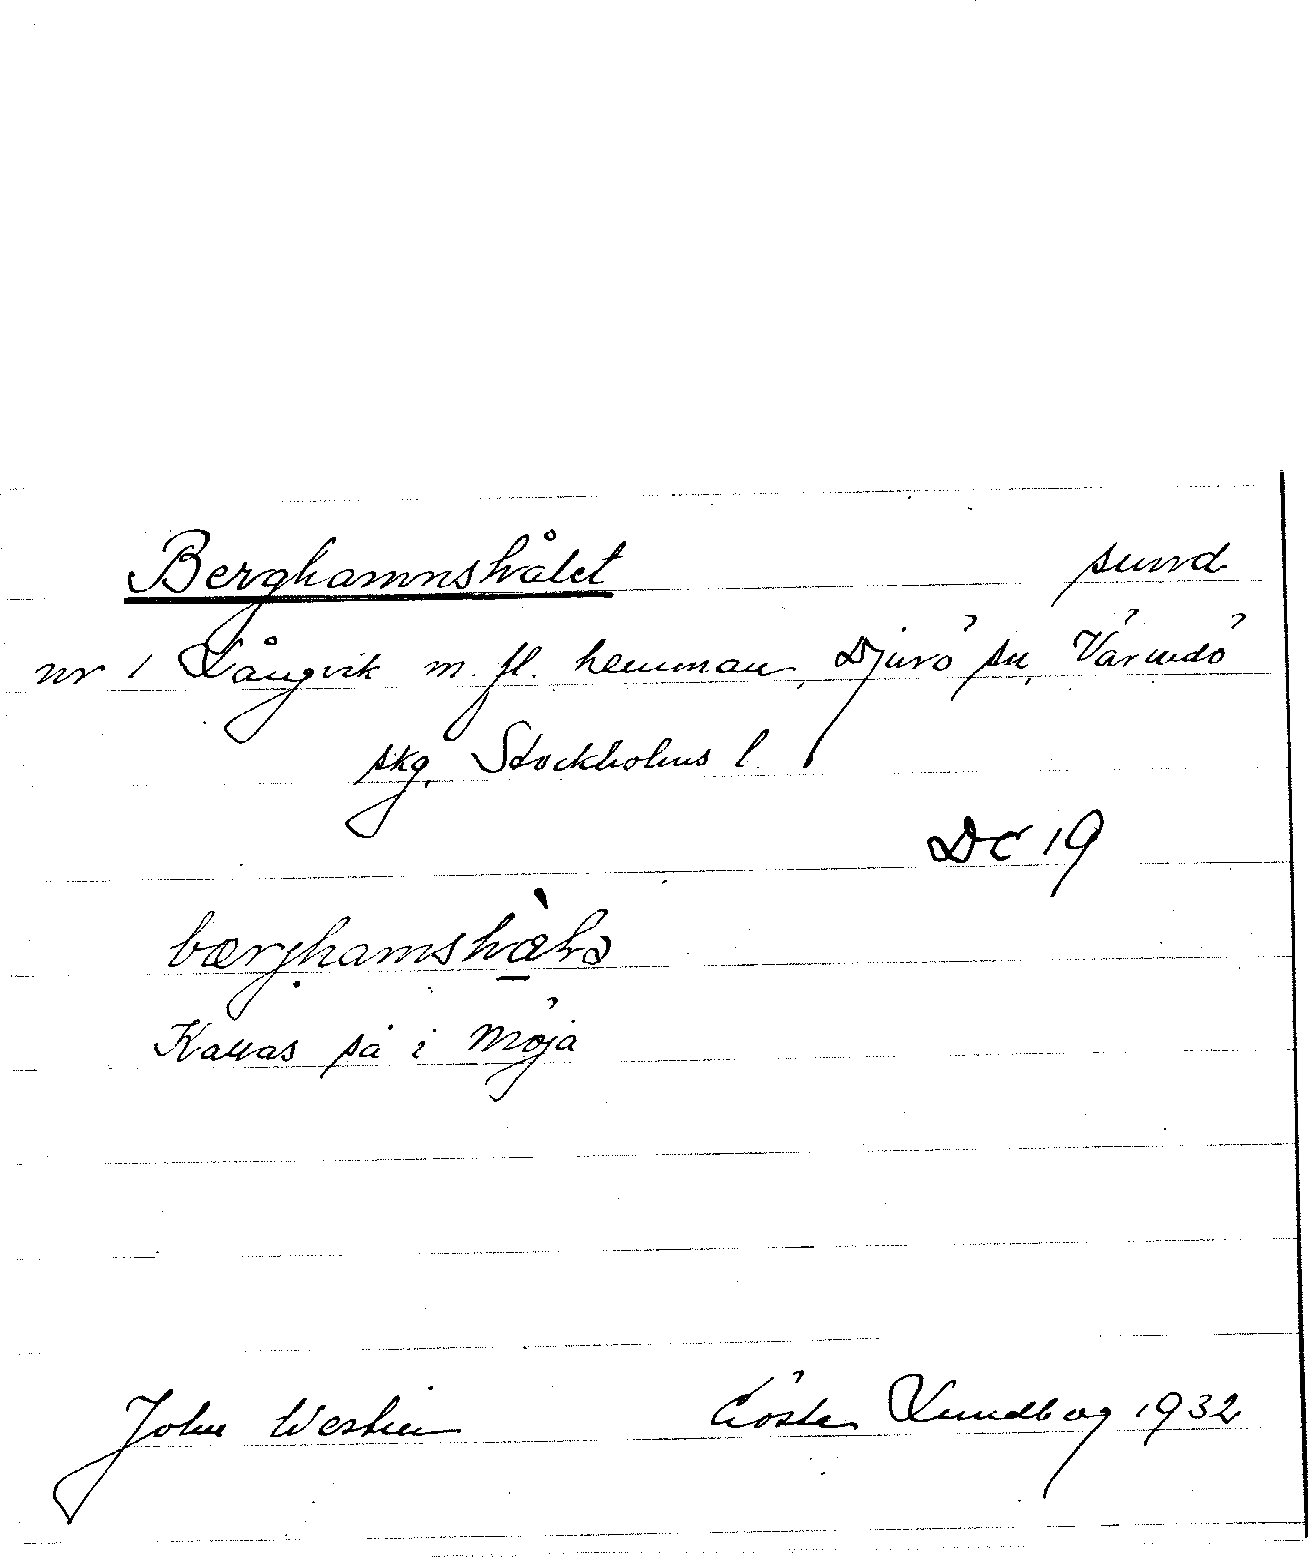 Berghamnshålet sund
nr 1 Långvik m. fl. hemman, Djurö sn, Värmdö
skg, Stockholms l.
Dc 19
Kallas så i Möja
John Westin Gösta Lundberg 1932